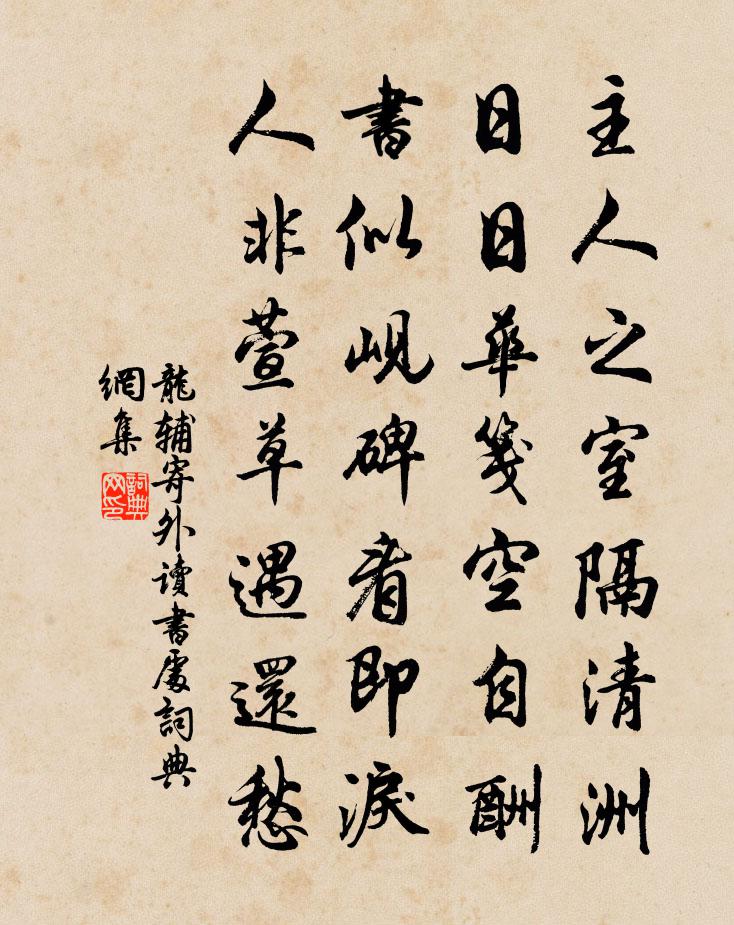 主人之室隔清洲
日日華箋空自酬
書似峴碑看即淚
人非萱草遇還愁
龍辅寄外读書處詞典
網集
詞典
网印